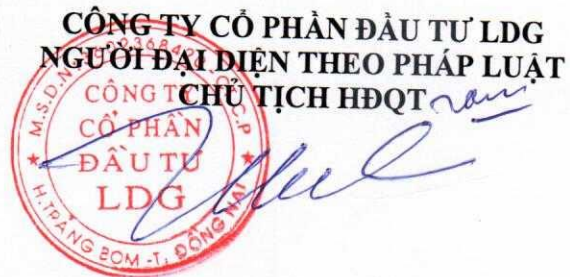 CÔNG TY CỔ PHẦN ĐẦU TƯ LDG
NGƯỜI ĐẠI DIỆN THEO PHÁP LUẬT
CHỦ TỊCH HĐQT
CÔNG TY
CỔ PHẦN
ĐẦU TƯ
LDG
H.TRẢNG BOM -T. ĐỒNG NAI